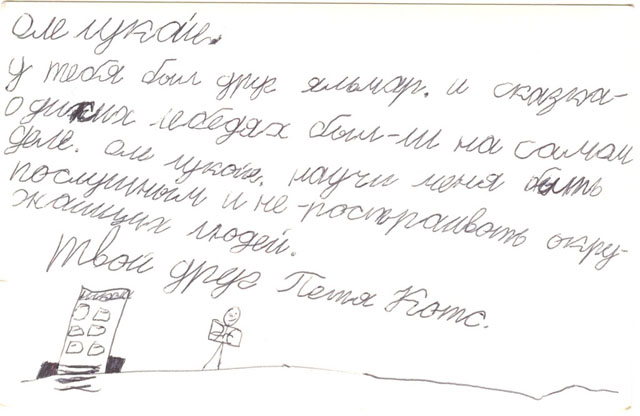 оле лукойе.
у тебя был друг яльмар. и сказка-
о диких лебедях был-ли на самом
деле. оле лукойе. научи меня быть
послушным и не-растраивать окру-
жаищих людей.
Твой друг Петя Котс.
школа